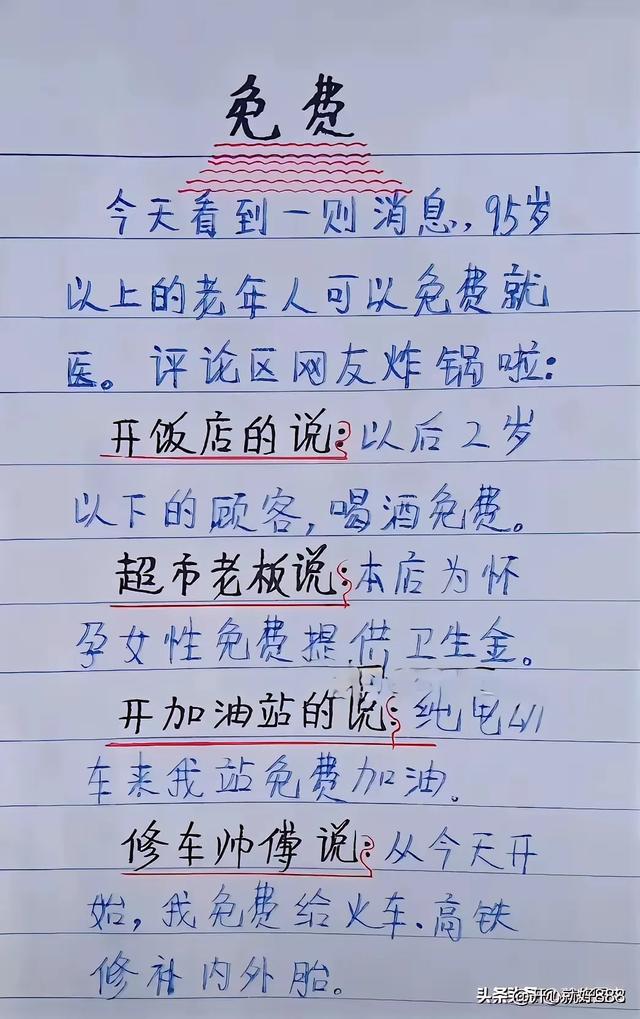 免费
今天看到一则消息，95岁
以上的老年人可以免费就
医。评论区网友炸锅啦：
开饭店的说：以后2岁
以下的顾客，喝酒免费。
超市老板说：本店为怀
孕女性免费提供卫生金。
开加油站的说：纯电
车来我站免费加油。
修车帅傅说：从今天开
始，我免费给火车、高铁
修补内外胎。
头条 @开心就好888